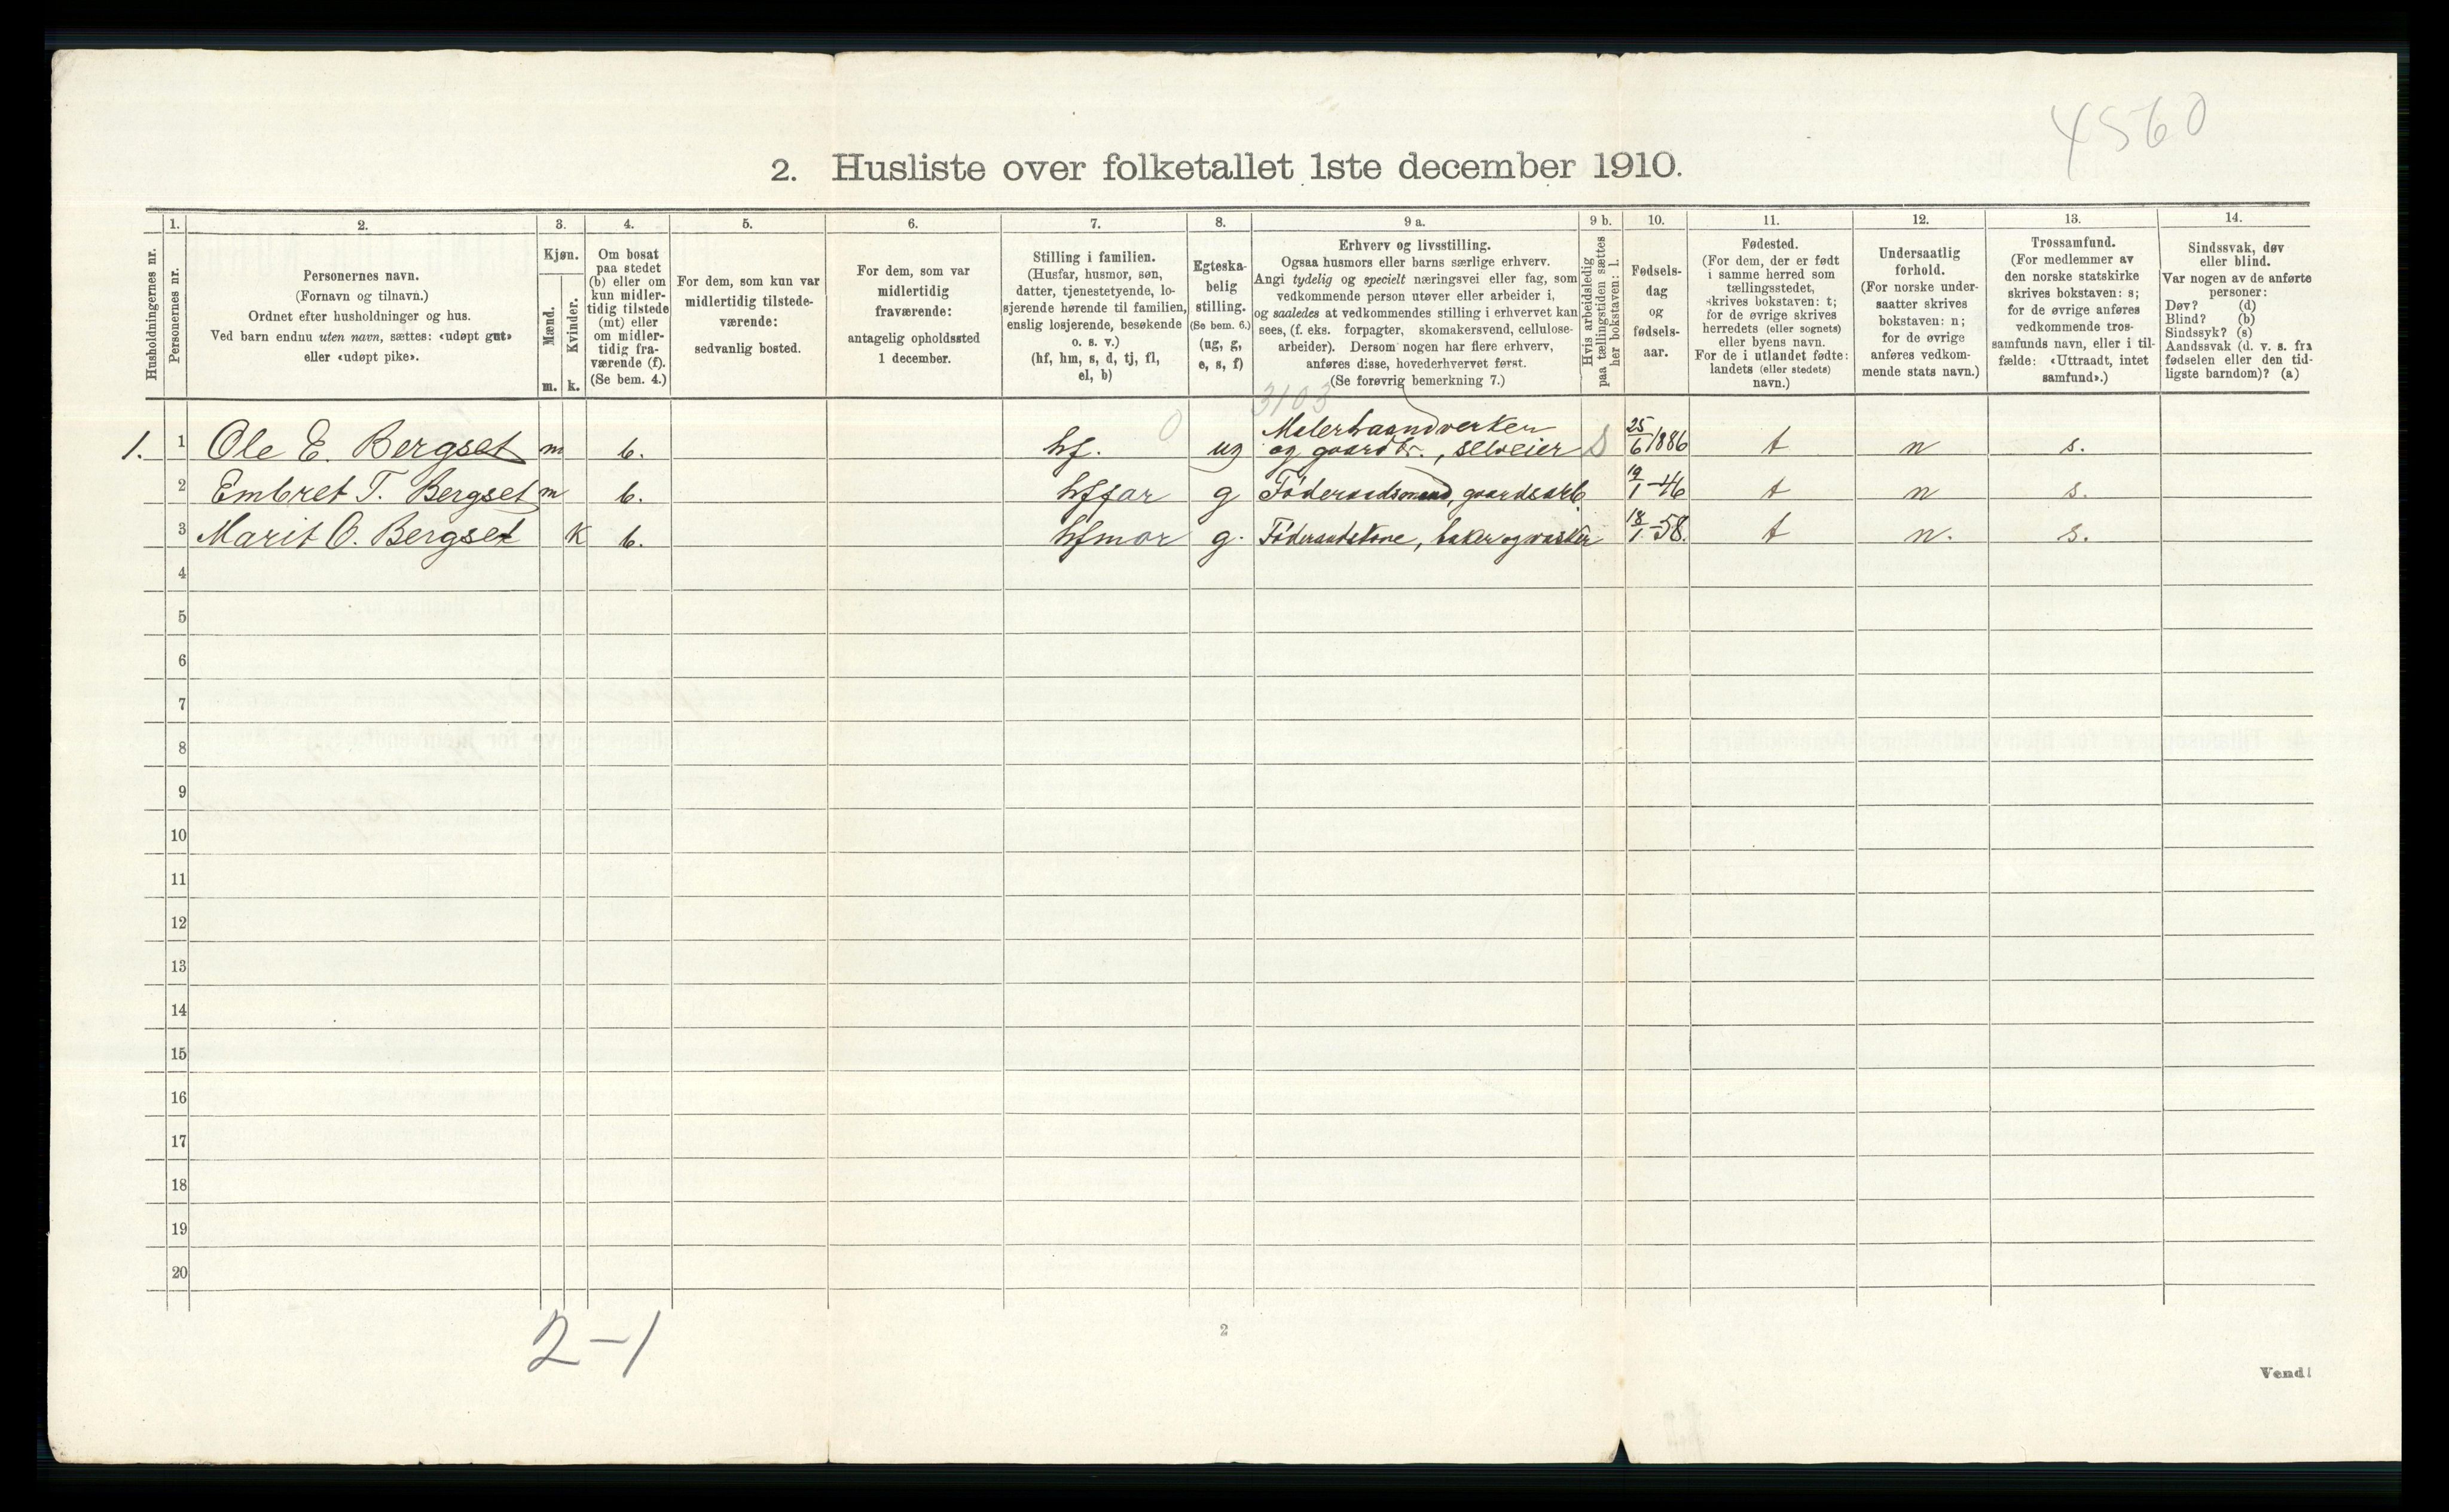 4560
2. Husliste over folketallet 1ste december 1910.
Husholdningernes nr.
1.
Personernes nr.
2.
Personernes navn.
(Fornavn og tilnavn.)
Ordnet efter husholdninger og hus.
Ved barn endnu uten navn, sættes: «udøpt gut»
eller «udøpt pike».
3.
Kjøn.
Mænd.
m.
Kvinder.
k.
4.
Om bosat
paa stedet
(b) eller om
kun midler-
tidig tilstede
(mt) eller
om midler-
tidig fra-
værende (f).
(Se bem. 4.)
5.
For dem, som kun var
midlertidig tilstede-
værende:
sedvanlig bosted.
6.
For dem, som var
midlertidig
fraværende:
antagelig opholdssted
1 december.
7.
Stilling i familien.
(Husfar, husmor, søn,
datter, tjenestetyende, lo-
sjerende hørende til familien,
enslig losjerende, besøkende
o. s. v.)
(hf, hm, s, d, tj, fl,
el, b)
8.
Egteska-
belig
stilling.
(Se bem. 6.)
(ug, g,
e, s, f)
9 a.
Erhverv og livsstilling.
Ogsaa husmors eller barns særlige erhverv.
Angi tydelig og specielt næringsvei eller fag, som
vedkommende person utøver eller arbeider i,
og saaledes at vedkommendes stilling i erhvervet kan
sees, (f. eks. forpagter, skomakersvend, cellulose-
arbeider). Dersom nogen har flere erhverv,
anføres disse, hovederhvervet først.
(Se forøvrig bemerkning 7.)
9 b.
Hvis arbeidsledig
paa tællingstiden sættes
her bokstaven: l.
10.
Fødsels-
dag
og
fødsels-
aar.
11.
Fødested.
(For dem, der er født
i samme herred som
tællingsstedet,
skrives bokstaven: t;
for de øvrige skrives
herredets (eller sognets)
eller byens navn.
For de i utlandet fødte:
landets (eller stedets)
navn.)
12.
Undersaatlig
forhold.
(For norske under-
saatter skrives
bokstaven: n;
for de øvrige
anføres vedkom-
mende stats navn.)
13.
Trossamfund.
(For medlemmer av
den norske statskirke
skrives bokstaven: s;
for de øvrige anføres
vedkommende tros-
samfunds navn, eller i til-
fælde: «Uttraadt, intet
samfund».)
14.
Sindssvak, døv
eller blind.
Var nogen av de anførte
personer:
Døv? (d)
Blind? (b)
Sindssyk? (s)
Aandssvak (d. v. s. fra
fødselen eller den tid-
ligste barndom)? (a)
3103
1. 1 Ole E. Bergset m b. hf. 0 ug Malerhaandverker og gaardbr., selveier S 25/6 1886 t n s.
2 Embret T. Bergset m b. hffar g Föderaadsmand, gaardsarb. 19/1 -46 t n s.
3 Marit O. Bergset k b. hfmor g. Föderaadskone, baker og vasker 18/1 -58. t n. s.
4
5
6
7
8
9
10
11
12
13
14
15
16
17
18
19
20
2-1
2
Vend!